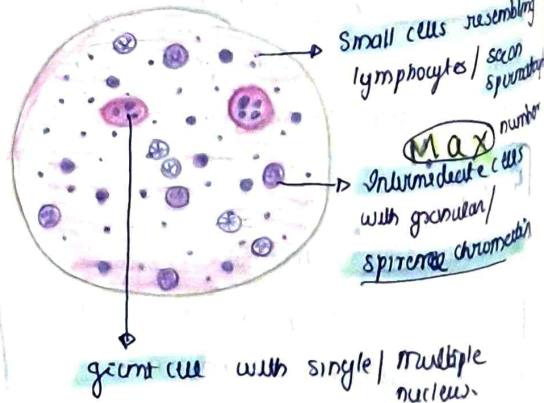 Small cells resembling
lymphocytes/
Max number
Intermideate cells
with granular/
spireme chromatin
giant cell with single/ multiple
nucleus.